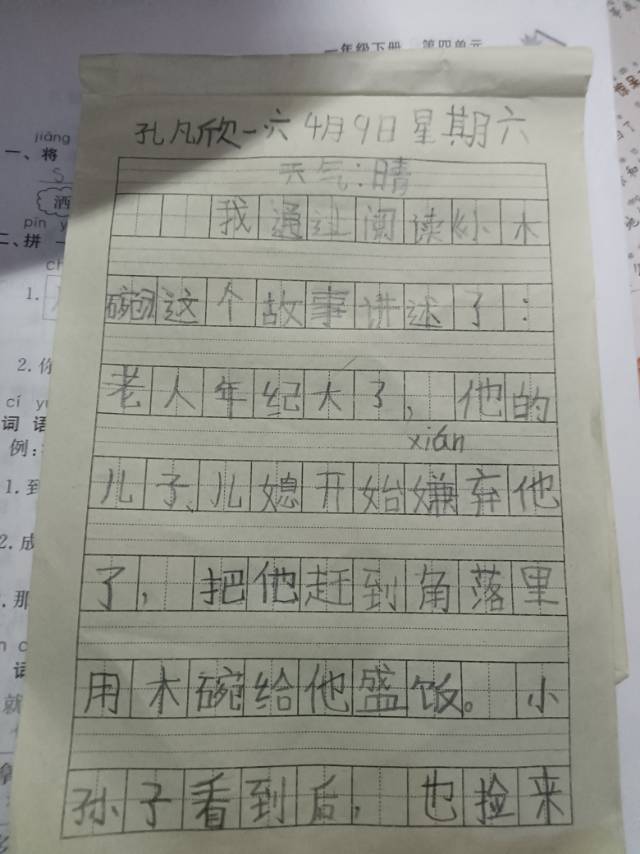 一年级下册 第四单元
jiāng
一、将
洒
pīn
二、拼一
1.
2.你
cí
词语
例:
1.到
2.成
那
词
就
孔凡欣一六 4月9日星期六
天气:晴
我通过阅读《小木
碗》这个故事讲述了:
老人年纪大了,他的
xián
儿子、儿媳开始嫌弃他
了,把他赶到角落里
用木碗给他盛饭。小
孙子看到后,也捡来